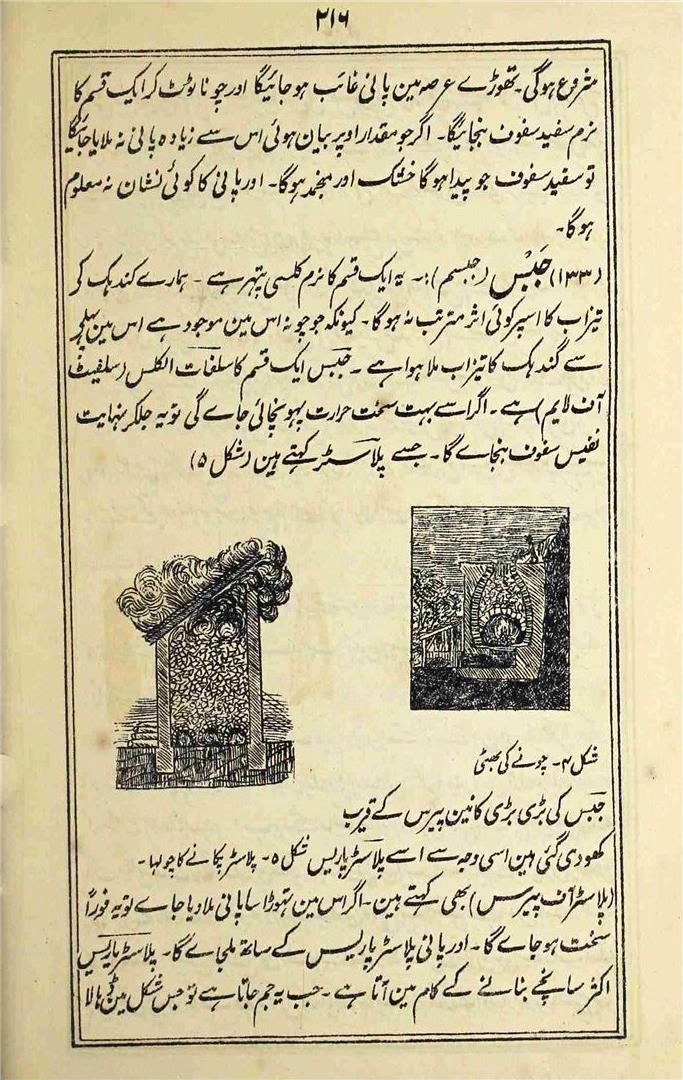 ۲۱۶
شروع ہوگی۔ تھوڑے عرصہ مین پانی غائب ہوجائیگا اور چونا ٹوٹ کر ایک قسم کا
نرم سفید سفوف بنجائیگا۔ اگر جو مقدار اوپر بیان ہوئی اس سے زیادہ پانی نہ ملایا جائیگا
تو سفید سفوف جو پیدا ہوگا خشک اور منجمد ہوگا۔ اور پانی کا کوئی نشان نہ معلوم
ہوگا۔
(۱۳۳) جَبْس (جبسم):۔ یہ ایک قسم کا نرم کلسی پتہر ہے۔ ہمارے گندہک کے
تیزاب کا اسپر کوئی اثر مترتب نہ ہوگا۔ کیونکہ جو چونہ اس مین موجود ہے اس مین پہلے
سے گندہک کا تیزاب ملا ہوا ہے۔ جَبَس ایک قسم کا سلفات الکلس (سلفیٹ
آف لایم) ہے۔ اگر اسے بہت سخت حرارت پہونچائی جاے گی تو یہ جلکر نہایت
نفیس سفوف بنجاے گا۔ جسے پلاسٹر کہتے ہین (شکل ۵)
شکل ۴۔ چونے کی بھٹی
جَبَس کی بڑی بڑی کانین پیرس کے قریب
کھودی گئی ہین اسی وجہ سے اسے پلاسٹر پاریس
شکل ۵۔ پلاسٹر پکانے کا چولہا۔
(پلاسٹر آف پیرس) بھی کہتے ہین۔ اگر اس مین تہوڑا سا پانی ملا دیا جاے تو یہ فوراً
سخت ہوجاے گا۔ اور پانی پلاسٹر پاریس کے ساتھ ملجاے گا۔ پلاسٹر پاریس
اکثر سانچے بنانے کے کام مین آتا ہے۔ جب یہ جم جاتا ہے تو جس شکل مین ڈہالا